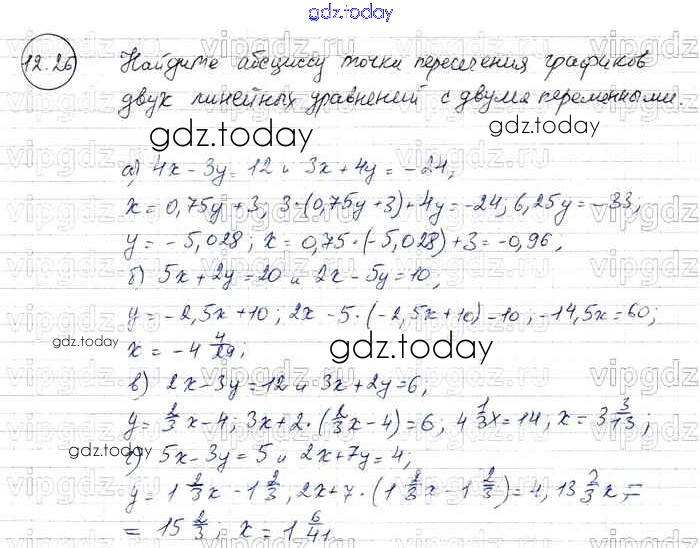 gdz.today
12.26 Найдите абсциссу точки пересечения графиков
двух линейных уравнений с двумя переменными.
gdz.today
gdz.today
а) 4x - 3y = 12 и 3x + 4y = -24;
x = 0,75y + 3; 3·(0,75y + 3) + 4y = -24; 6,25y = -33;
y = -5,028; x = 0,75·(-5,028) + 3 = -0,96;
б) 5x + 2y = 20 и 2x - 5y = 10;
y = -2,5x + 10; 2x - 5·(-2,5x + 10) - 10; -14,5x = 60;
x = -4 4/29;
gdz.today
gdz.today
в) 2x - 3y = 12 и 3x + 2y = 6,
y = 2/3 x - 4; 3x + 2·(2/3 x - 4) = 6, 4 1/3 x = 14; x = 3 3/13;
г) 5x - 3y = 5 и 2x + 7y = 4;
gdz.today
y = 1 2/3 x - 1 2/3; 2x + 7·(1 2/3 x - 1 2/3) = 4, 13 2/3 x =
= 15 2/3; x = 1 6/41.
gdz.today